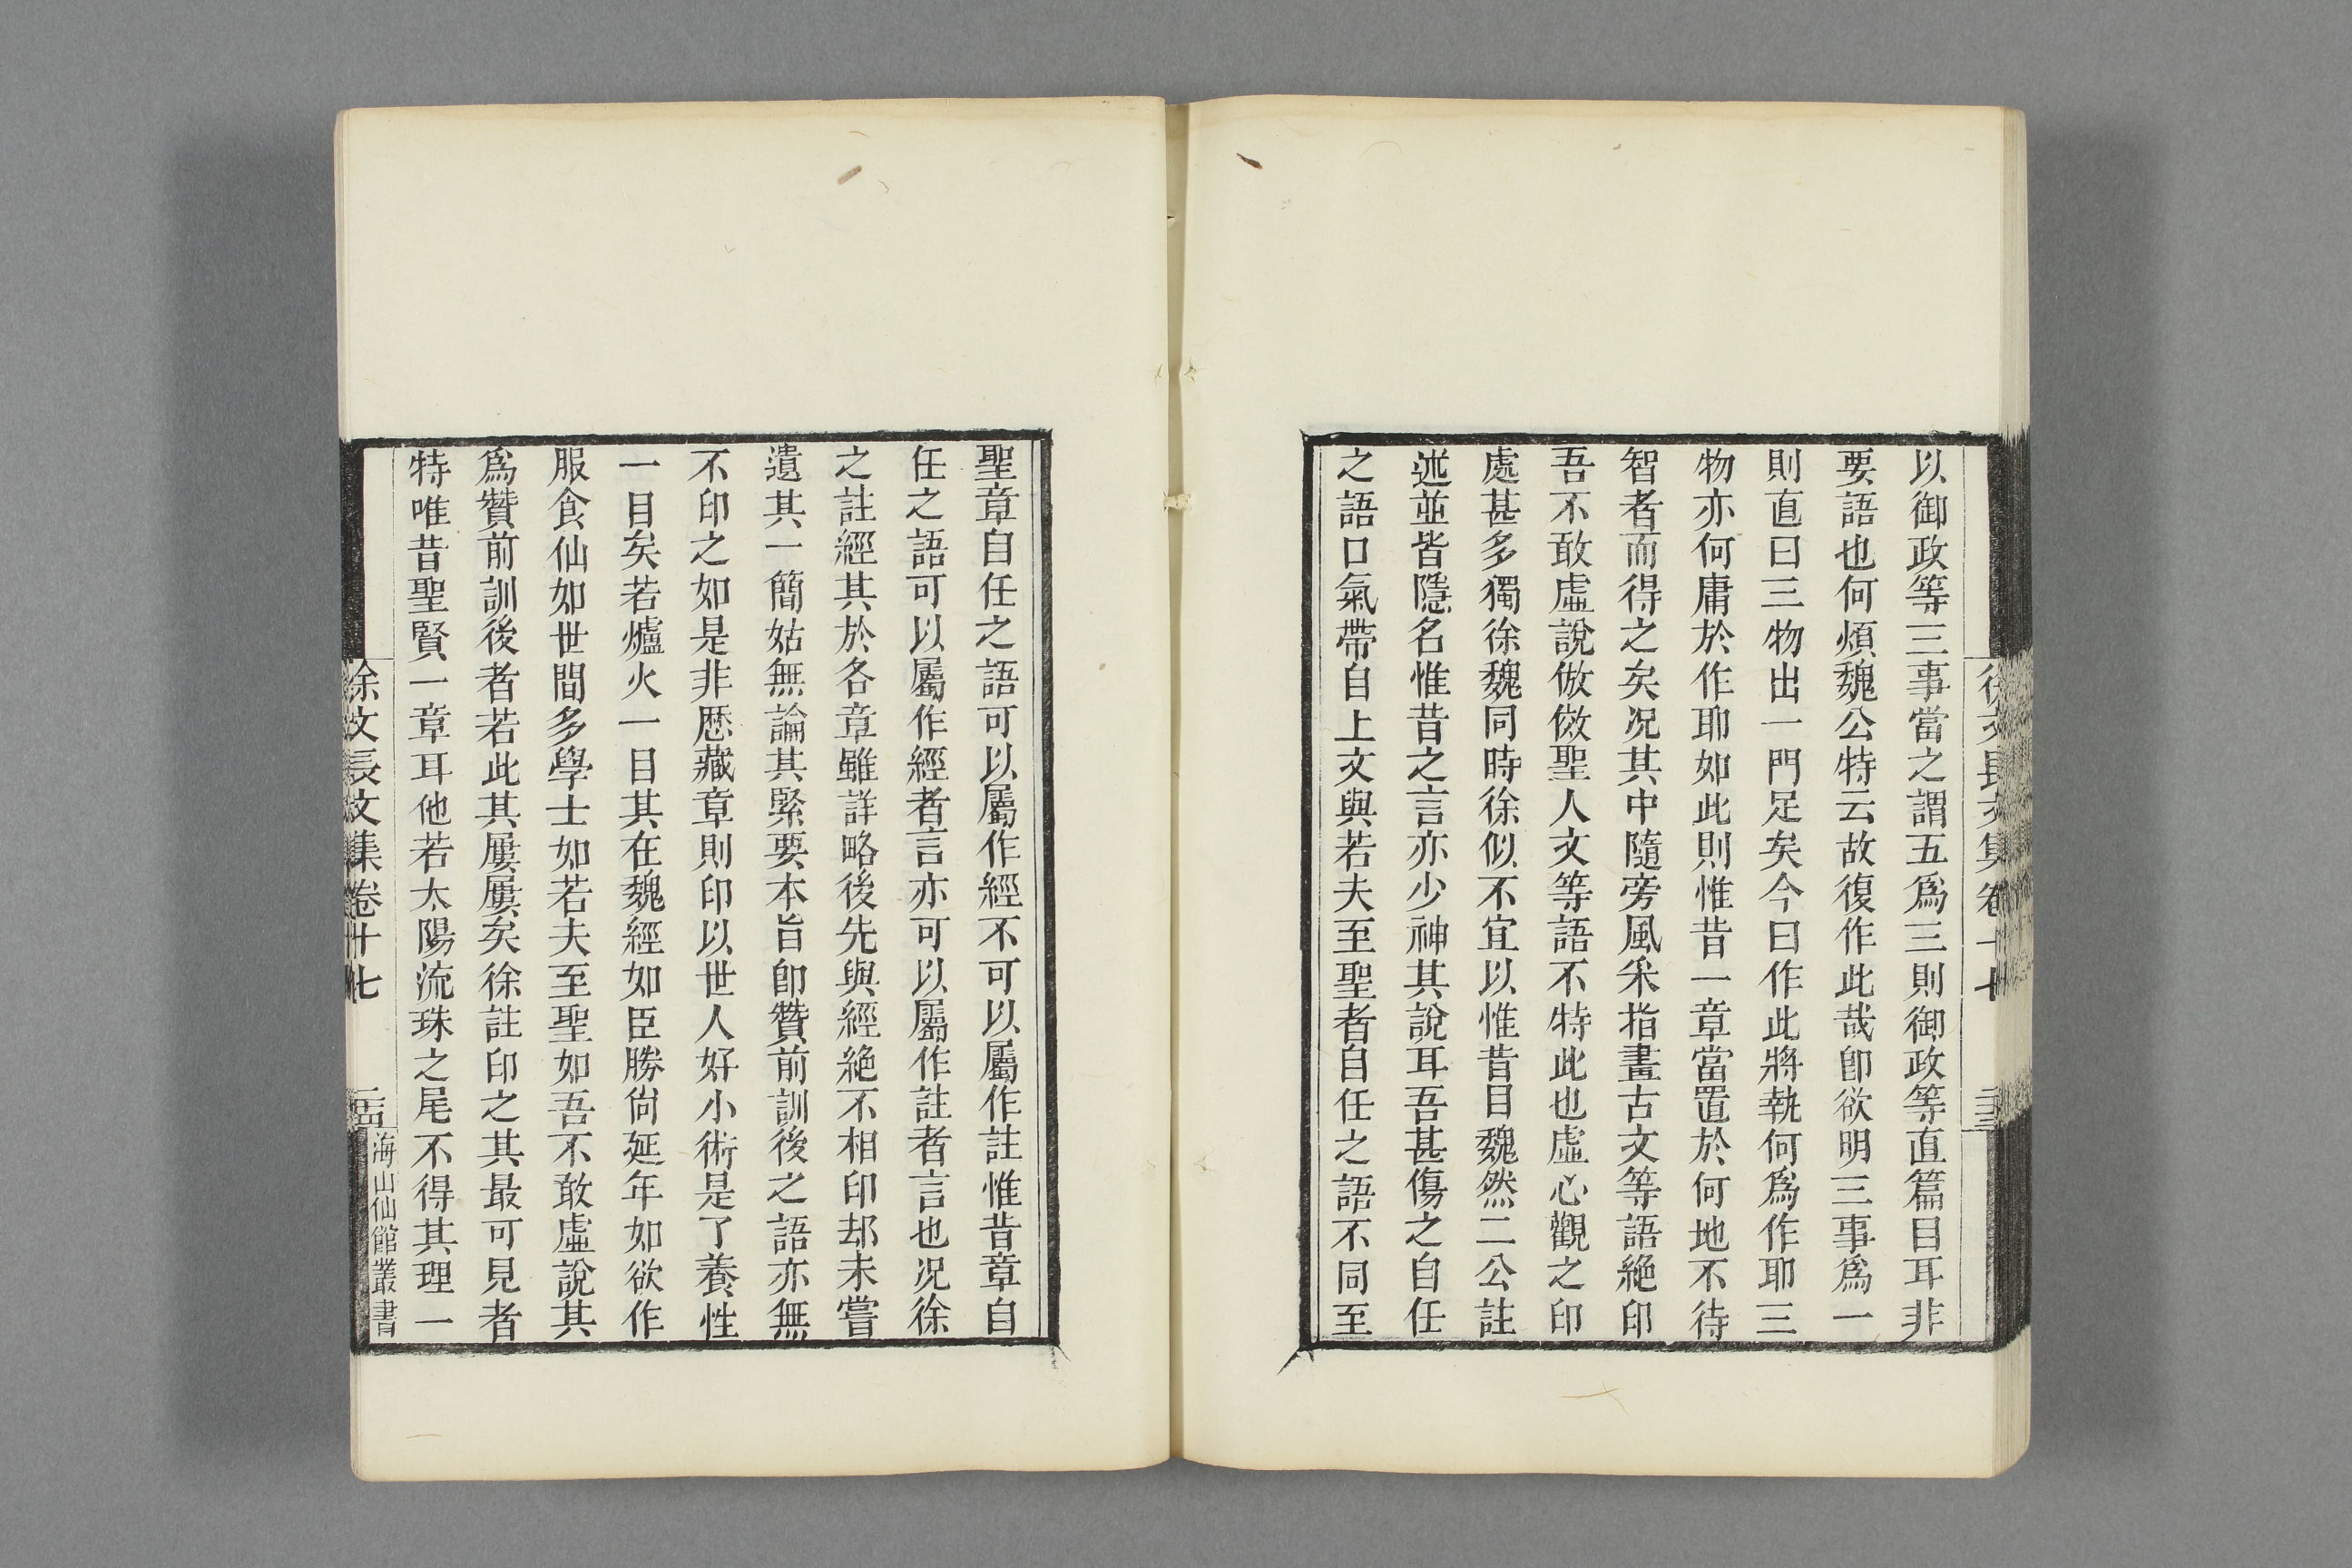 徐文長文集卷十七
二十三
以御政等三事當之謂五爲三則御政等直篇目耳非
要語也何煩魏公特云故復作此哉卽欲明三事爲一
則直曰三物出一門足矣今曰作此將執何爲作耶三
物亦何庸於作耶如此則惟昔一章當置於何地不待
智者而得之矣况其中隨旁風采指畫古文等語絕印
吾不敢虛說倣傚聖人文等語不特此也虛心觀之印
處甚多獨徐魏同時徐似不宜以惟昔目魏然二公註
述並皆隱名惟昔之言亦少神其說耳吾甚傷之自任
之語口氣帶自上文與若夫至聖者自任之語不同至
聖章自任之語可以屬作經不可以屬作註惟昔章自
任之語可以屬作經者言亦可以屬作註者言也况徐
之註經其於各章雖詳略後先與經絕不相印却未嘗
遺其一簡姑無論其緊要本旨卽贊前訓後之語亦無
不印之如是非歷藏章則印以世人好小術是了養性
一目矣若爐火一目其在魏經如臣勝尙延年如欲作
服食仙如世間多學士如若夫至聖如吾不敢虛說其
爲贊前訓後者若此其屢屢矣徐註印之其最可見者
特唯昔聖賢一章耳他若太陽流珠之尾不得其理一
徐文長文集卷十七
二十四
海山仙館叢書